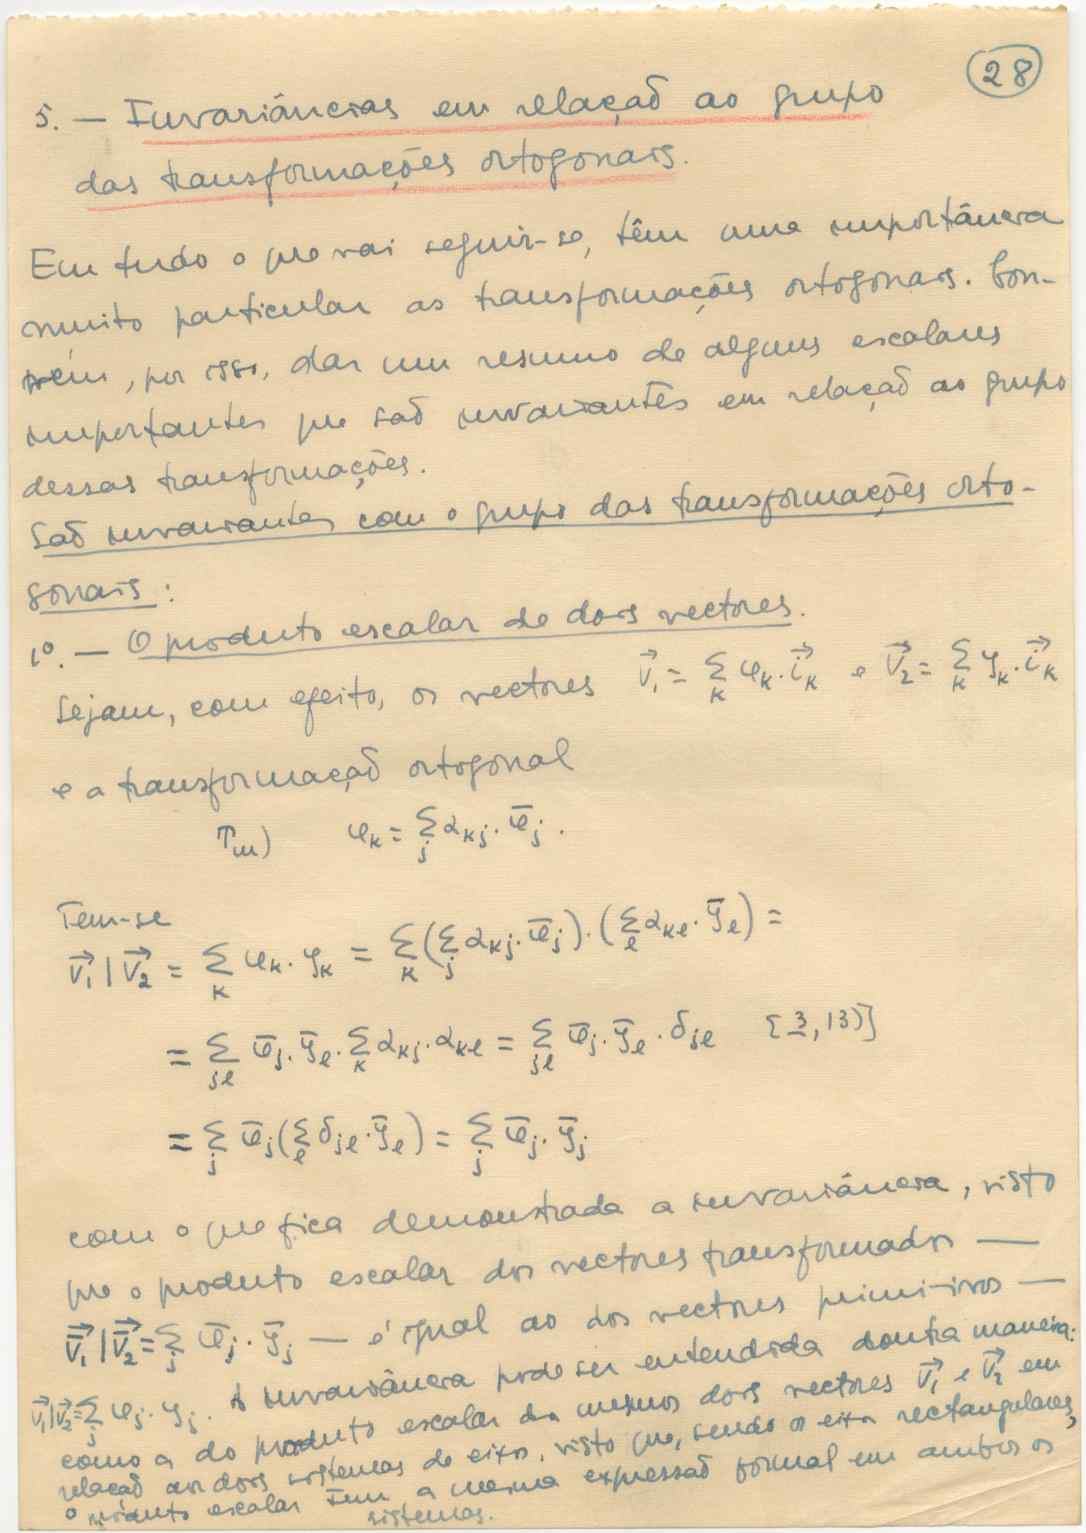 28
5. — Invariâncias em relação ao grupo
das transformações ortogonais.
Em tudo o que vai seguir-se, têm uma importância
muito particular as transformações ortogonais. Con-
vém, por isso, dar um resumo de alguns escalares
importantes que são invariantes em relação ao grupo
dessas transformações.
São invariantes com o grupo das transformações orto-
gonais:
1º. — O produto escalar de dois vectores.
Sejam, com efeito, os vectores V⃗₁ = Σₖ φₖ · i⃗ₖ e V⃗₂ = Σₖ ψₖ · i⃗ₖ
e a transformação ortogonal
Tₘ) φₖ = Σⱼ αₖⱼ · φ̄ⱼ .
Tem-se
V⃗₁ | V⃗₂ = Σₖ φₖ · ψₖ = Σₖ (Σⱼ αₖⱼ · φ̄ⱼ) · (Σₗ αₖₗ · ψ̄ₗ) =
= Σⱼₗ φ̄ⱼ · ψ̄ₗ · Σₖ αₖⱼ · αₖₗ = Σⱼₗ φ̄ⱼ · ψ̄ₗ · δⱼₗ [3, 13)]
= Σⱼ φ̄ⱼ (Σₗ δⱼₗ · ψ̄ₗ) = Σⱼ φ̄ⱼ · ψ̄ⱼ
com o que fica demonstrada a invariância, visto
que o produto escalar dos vectores transformados —
V̄⃗₁ | V̄⃗₂ = Σⱼ φ̄ⱼ · ψ̄ⱼ — é igual ao dos vectores primitivos —
V⃗₁ | V⃗₂ = Σⱼ φⱼ · ψⱼ. A invariância pode ser entendida doutra maneira:
como a do produto escalar dos mesmos dois vectores V⃗₁ e V⃗₂ em
relação aos dois sistemas de eixos, visto que, sendo os eixos rectangulares,
o produto escalar tem a mesma expressão formal em ambos os
sistemas.